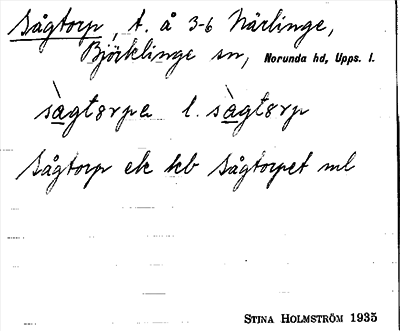 Sågtorp, t. å 3-6 Närlinge,
Björklinge sn, Norunda hd, Upps. l.
sàgtɜrpa l. sàgtɜrp
Sågtorp ek kb Sågtorpet ml
STINA HOLMSTRÖM 1935